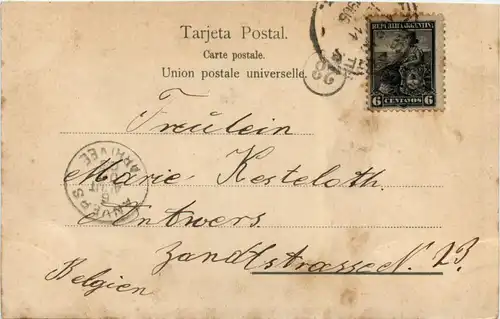 Tarjeta Postal.
Carte postale.
Union postale universelle.
REPUBLICA ARGENTINA
6 CENTAVOS 6
28
Fräulein
Marie Kesteloth.
Antwers.
Zandtstrasse N. 23.
Belgien
ANVERS
ARRIVÉE